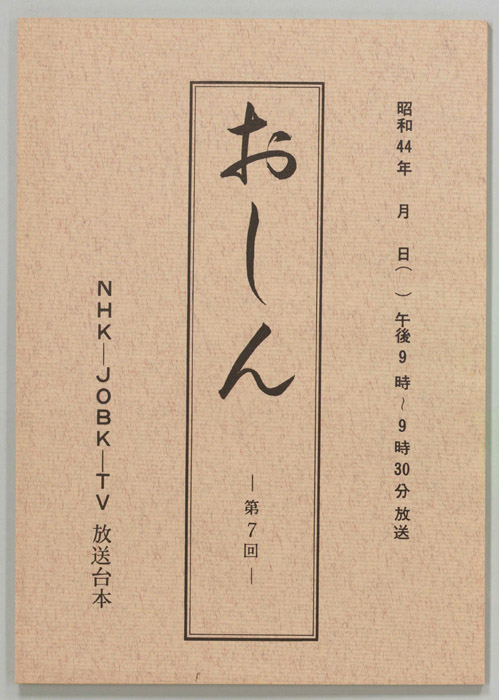 昭和44年　月　日（　）午後9時～9時30分放送
おしん
―第7回―
NHK―JOBK―TV 放送台本